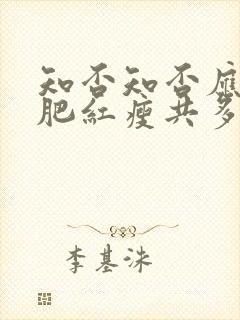 知否知否應
肥紅瘦共多
李基洙